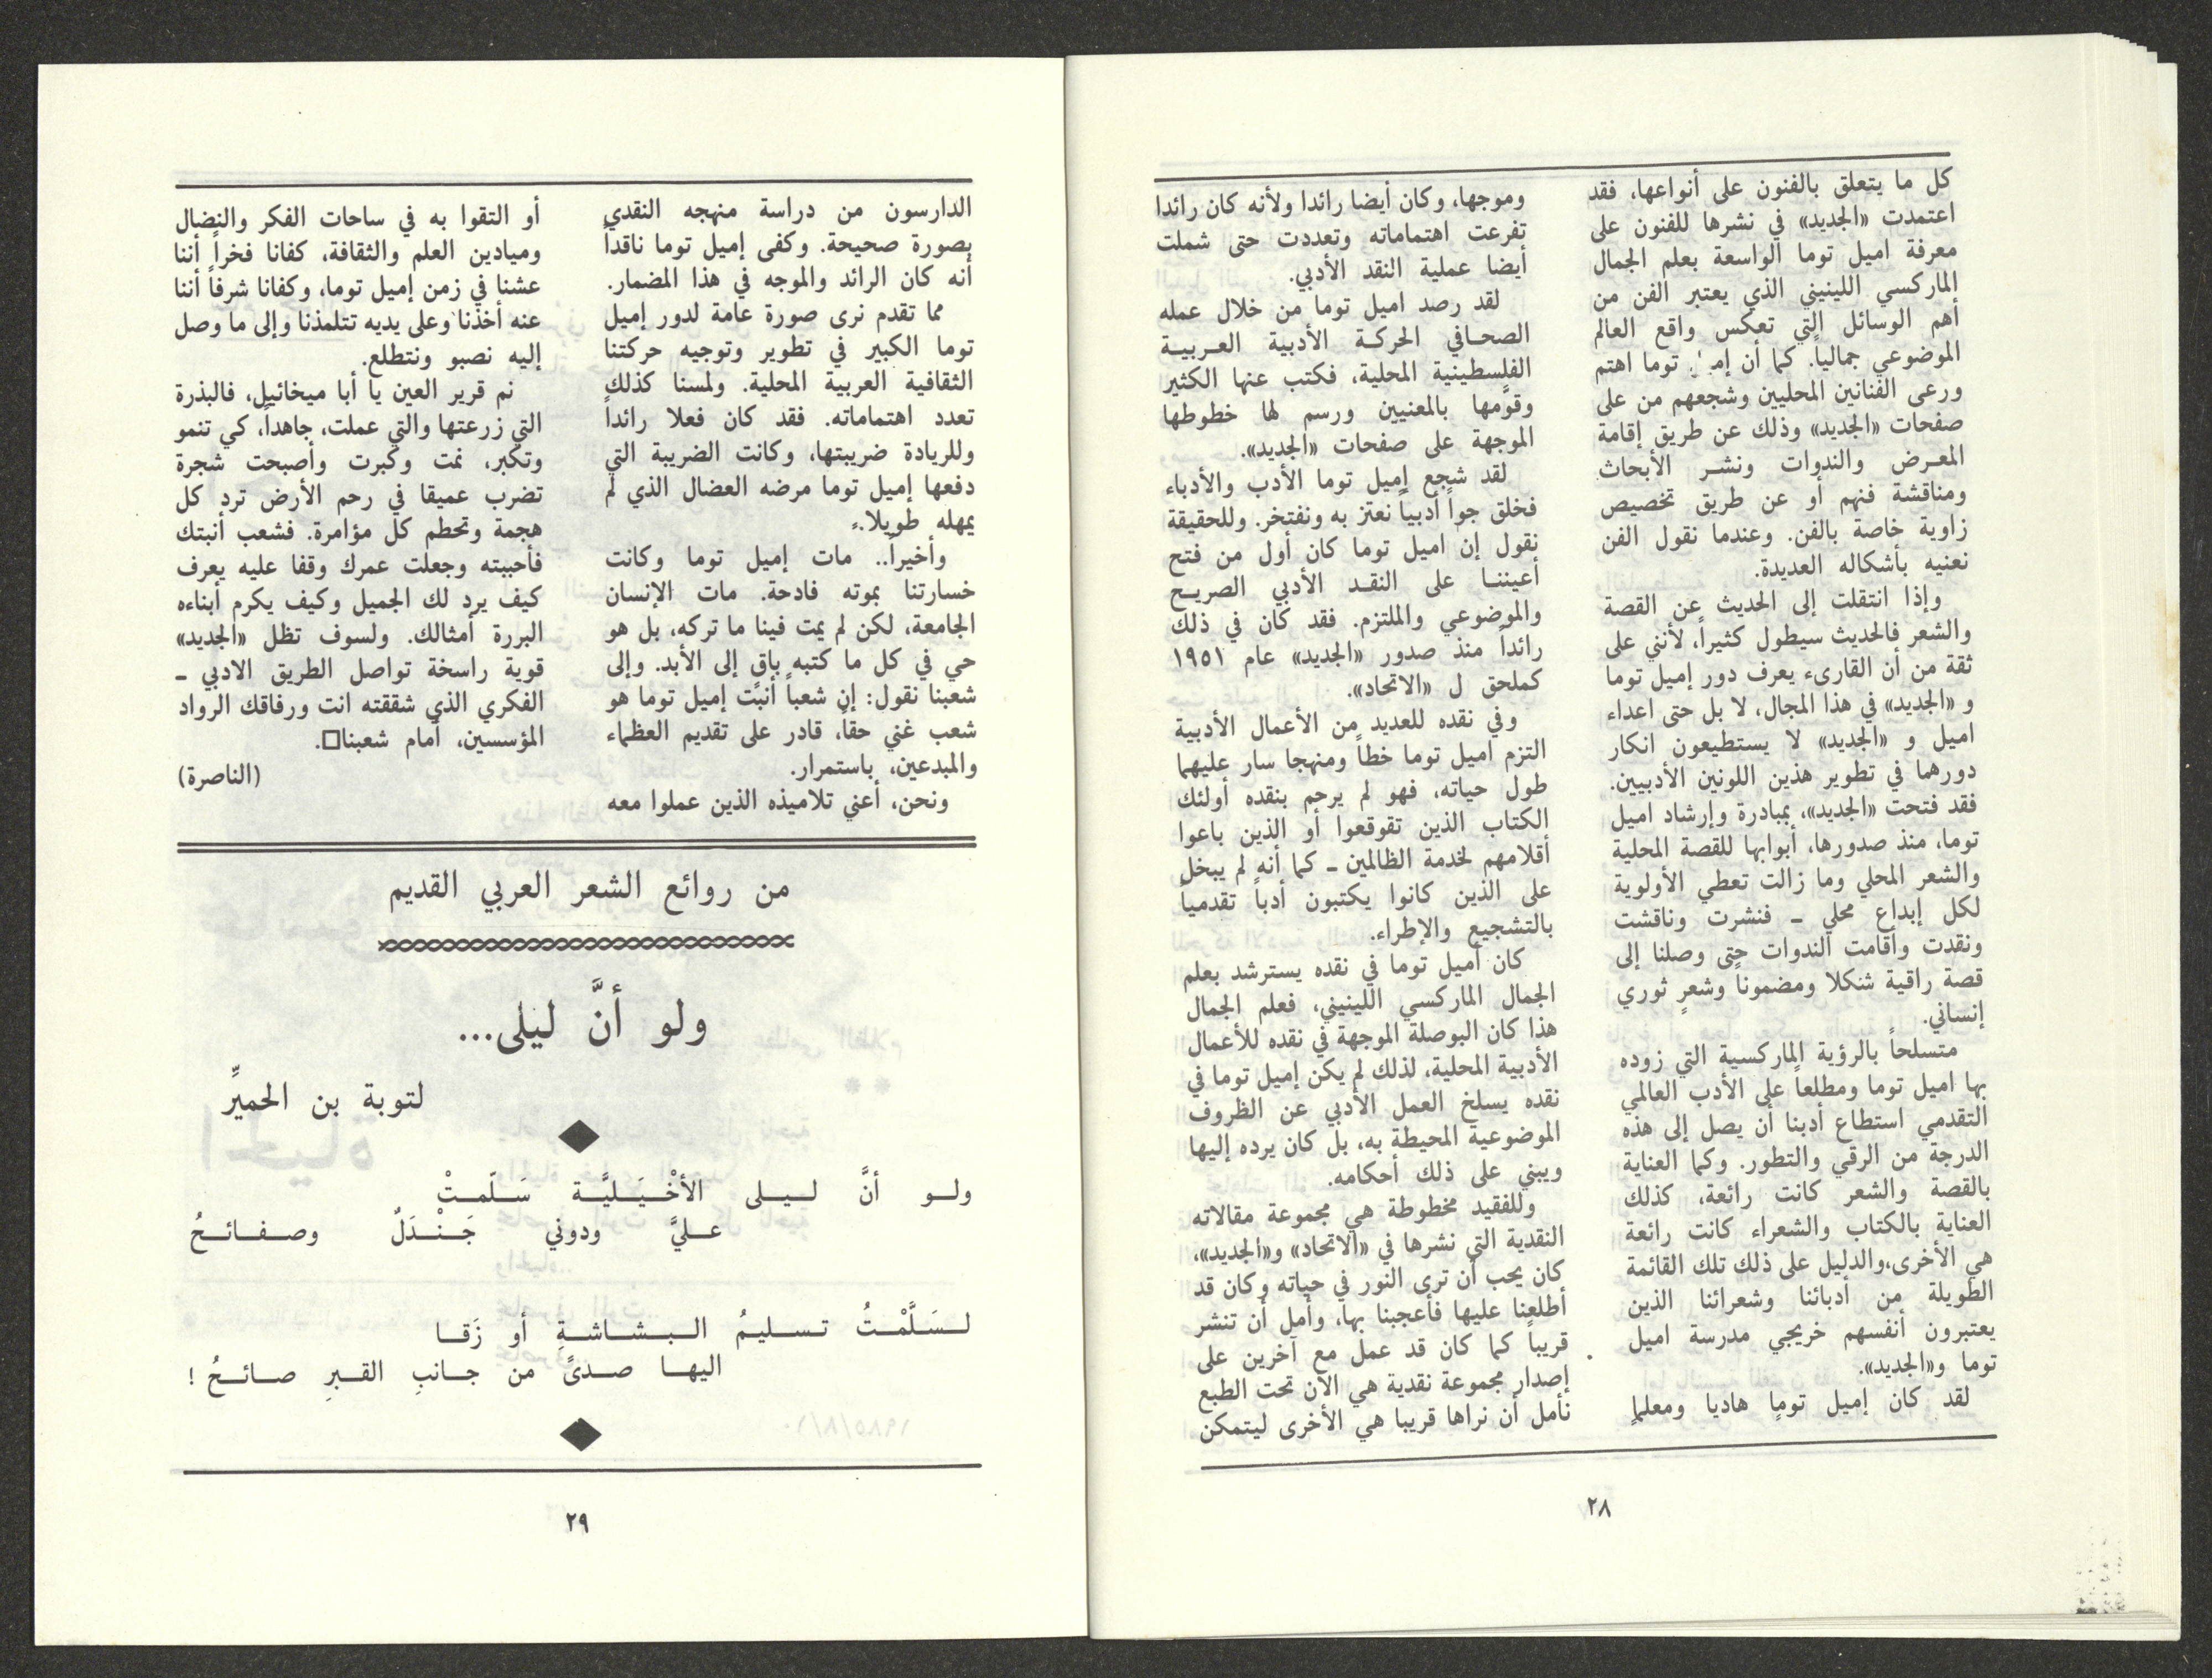 كل ما يتعلق بالفنون على أنواعها، فقد
اعتمدت «الجديد» في نشرها للفنون على
معرفة اميل توما الواسعة بعلم الجمال
الماركسي اللينيني الذي يعتبر الفن من
أهم الوسائل التي تعكس واقع العالم
الموضوعي جمالياً. كما أن توما اهتم
ورعى الفنانين المحليين وشجعهم من على
صفحات «الجديد» وذلك عن طريق إقامة
المعـرض والندوات ونشـر الأبحاث
ومناقشة فنهم أو عن طريق تخصيص
زاوية خاصة بالفن. وعندما نقول الفن
نعنيه بأشكاله العديدة.
وإذا انتقلت إلى الحديث عن القصة
والشعر فالحديث سيطول كثيراً، لأنني على
ثقة من أن القارىء يعرف دور إميل توما
و «الجديد» في هذا المجال، لا بل حتى اعداء
اميل و «الجديد» لا يستطيعون انكار
دورهما في تطوير هذين اللونين الأدبيين.
فقد فتحت «الجديد»، بمبادرة وإرشاد اميل
توما، منذ صدورها، أبوابها للقصة المحلية
والشعر المحلي وما زالت تعطي الأولوية
لكل إبداع محلي ـ فنشرت وناقشت
ونقدت وأقامت الندوات حتى وصلنا إلى
قصة راقية شنكلا ومضموناً وشعرٍ ثوري
إنساني.
متسلحاً بالرؤية الماركسية التي زوده
بها اميل توما ومطلعاً على الأدب العالمي
التقدمي استطاع أدبنا أن يصل إلى هذه
الدرجة من الرقي والتطور. وكما العناية
بالقصة والشعر كانت رائعة، كذلك
العناية بالكتاب والشعراء كانت رائعة
هي الأخرى،والدليل على ذلك تلك القائمة
الطويلة من أدبائنا وشعرائنا الذين
يعتبرون أنفسهم خريجي مدرسة اميل
توما و«الجديد».
لقد كان إميل توما هاديا ومعلما
وموجها، وكان أيضا رائدا ولأنه كان رائدا
تفرعت اهتماماته وتعددت حتى شملت
أيضا عملية النقد الأدبي.
لقد رصد اميل توما من خلال عمله
الصحـافي الحركـة الأدبية العـربيـة
الفلسطينية المحلية، فكتب عنها الكثير
وقوَّمها بالمعنيين ورسم لها خطوطها
الموجهة على صفحات «الجديد».
لقد شجع إميل توما الأدب والأدباء
فخلق جواً أدبياً نعتز به ونفتخر. وللحقيقة
نقول إن اميل توما كان أول من فتح
أعيننـا على النقـد الأدبي الصريـح
والموضوعي والملتزم. فقد كان في ذلك
رائداً منذ صدور «الجديد» عام ١٩٥١
كملحق ل «الاتحاد».
وفي نقده للعديد من الأعمال الأدبية
التزم اميل توما خطاً ومنهجا سار عليهما
طول حياته، فهو لم يرحم بنقده أولئك
الكتاب الذين تقوقعوا أو الذين باعوا
أقلامهم لخدمة الظالمين ـ كما أنه لم يبخل
على الذين كانوا يكتبون أدباً تقدمياً
بالتشجيع والإطراء.
كان أميل توما في نقده يسترشد بعلم
الجمال الماركسي اللينيني، فعلم الجمال
هذا كان البوصلة الموجهة في نقده للأعمال
الأدبية المحلية، لذلك لم يكن إميل توما في
نقده يسلخ العمل الأدبي عن الظروف
الموضوعية المحيطة به، بل كان يرده إليها
ويبني على ذلك أحكامه.
وللفقيد مخطوطة هي مجموعة مقالاته
النقدية التي نشرها في «الاتحاد» و«الجديد»،
كان يحب أن ترى النور في حياته وكان قد
أطلعنا عليها فأعجبنا بها، وأمل أن تنشر
قريباً كما كان قد عمل مع آخرين على
إصدار مجموعة نقدية هي الآن تحت الطبع
نأمل أن نراها قريبا هي الأخرى ليتمكن
٢٨
الدارسون من دراسة منهجه النقدي
بصورة صحيحة. وكفى إميل توما ناقداً
أنه كان الرائد والموجه في هذا المضمار.
مما تقدم نرى صورة عامة لدور إميل
توما الكبير في تطوير وتوجيه حركتنا
الثقافية العربية المحلية. ولمسنا كذلك
تعدد اهتماماته. فقد كان فعلا رائداً
وللريادة ضريبتها، وكانت الضريبة التي
دفعها إميل توما مرضه العضال الذي لم
يمهله طويلا.
وأخيراً.. مات إميل توما وكانت
خسارتنا بموته فادحة. مات الإنسان
الجامعة، لكن لم يمت فينا ما تركه، بل هو
حي في كل ما كتبه باقٍ إلى الأبد. وإلى
شعبنا نقول: إن شعباً أنبت إميل توما هو
شعب غني حقاً، قادر على تقديم العظماء
والمبدعين، باستمرار.
ونحن، أعني تلاميذه الذين عملوا معه
أو التقوا به في ساحات الفكر والنضال
وميادين العلم والثقافة، كفانا فخراً أننا
عشنا في زمن إميل توما، وكفانا شرفاً أننا
عنه أخذنا وعلى يديه تتلمذنا وإلى ما وصل
إليه نصبو ونتطلع.
نم قرير العين يا أبا ميخائيل، فالبذرة
التي زرعتها والتي عملت، جاهداً، كي تنمو
وتكبر، نمت وكبرت وأصبحت شجرة
تضرب عميقا في رحم الأرض ترد كل
هجمة وتحطم كل مؤامرة. فشعب أنبتك
فأحببته وجعلت عمرك وقفا عليه يعرف
كيف يرد لك الجميل وكيف يكرم أبناءه
البررة أمثالك. ولسوف تظل «الجديد»
قوية راسخة تواصل الطريق الادبي ـ
الفكري الذي شققته انت ورفاقك الرواد
المؤسسين، أمام شعبنا□.
(الناصرة)
من روائع الشعر العربي القديم
ولو أنَّ ليلى...
لتوبة بن الحميِّر
ولـو أنَّ لـيـلى الأخْـيَـليَّـة سَـلّمـتْ
عـليَّ ودوني جَـنْـدَلٌ وصـفـائـحُ
لـسَـلَّمْـتُ تـسـليمُ الـبـشـاشـةِ أو زَقـا
اليهـا صـدىً من جـانبِ القـبرِ صـائـحُ !
٢٩